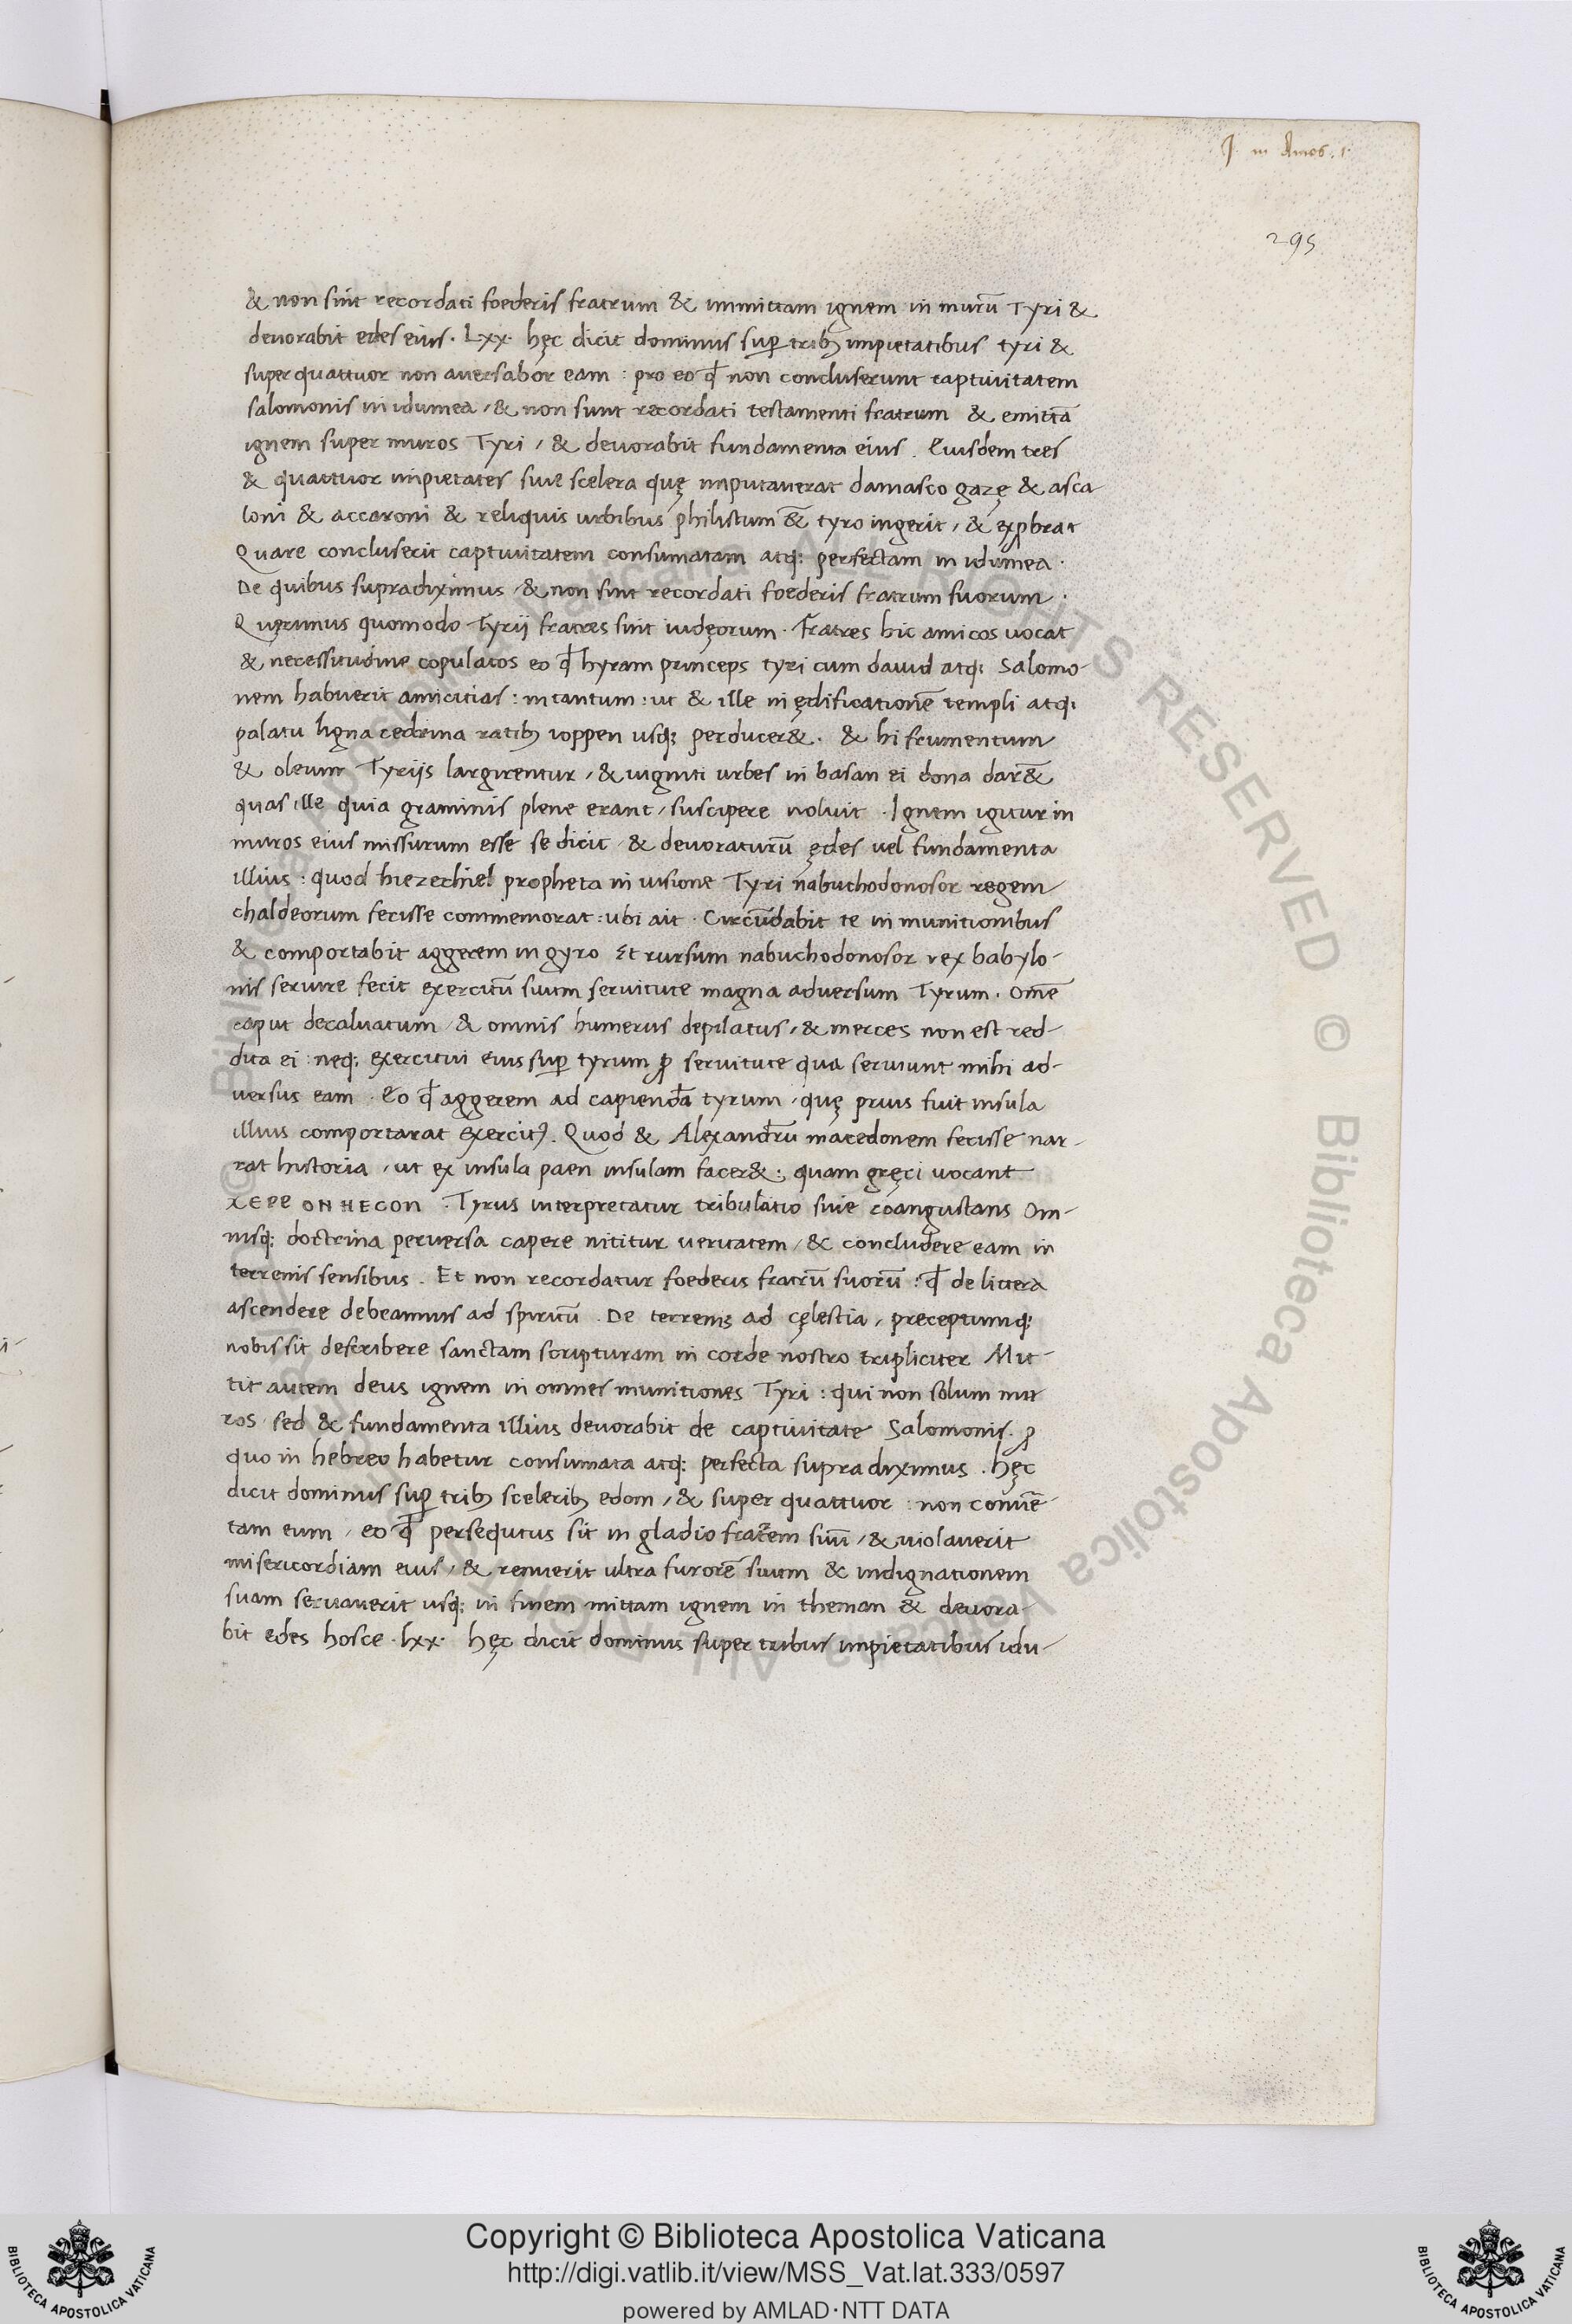 J. in Amos. 1.
295
& non sint recordati foederis fratrum & immittam ignem in murū Tyri &
devorabit edes eius . Lxx. hęc dicit dominus sup tribꝫ impietatibus tyri &
super quattuor non aversabor eam : pro eo qđ non concluserunt captivitatem
salomonis in idumea / & non sunt recordati testamenti fratrum & emittā
ignem super muros Tyri / & devorabit fundamenta eius . Eiusdem tres
& quattuor impietates sive scelera quę imputaverat damasco gazę & asca
loni & accaroni & reliquis urbibus philistum & tyro ingerit / & exꝓbrat
Quare concluserit captivitatem consumatam atq; perfectam in idumea .
De quibus supradiximus / & non sint recordati foederis fratrum suorum .
Quęrimus quomodo Tyrij fratres sint iudęorum . Fratres hic amicos vocat
& necessitudine copulatos eo qđ hyram princeps tyri cum david atq; Salomo-
nem habuerit amicitias : in tantum : ut & ille in ędificationē templi atq;
palatii ligna cedrina ratibꝫ ioppen usq; perducer& . & hi frumentum
& oleum Tyrijs largirentur / & viginti urbes in basan ei dona dar&
quas ille quia graminis plene erant / suscipere noluit . Ignem igitur in
muros eius missurum esse se dicit / & devoraturū ędes vel fundamenta
illius : quod hiezechiel propheta in visione Tyri nabuchodonosor regem
chaldeorum fecisse commemorat : ubi ait . Circūdabit te in munitionibus
& comportabit aggerem in gyro Et rursum nabuchodonosor rex babylo-
nis servire fecit exercitū suum servitute magna adversum Tyrum . Omē
caput decalvatum / & omnis humerus depilatus / & merces non est red-
dita ei : neq; exercitui eius sup tyrum ꝓ servitute qua serviunt mihi ad-
versus eam . Eo qđ aggerem ad capiendā tyrum / quę prius fuit insula
illius comportarat exercitꝰ. Quod & Alexandrū macedonem fecisse nar-
rat historia / ut ex insula paen insulam facer& : quam gręci vocant
ΧΕΡΡ ΟΝ ΗΕϹΟΝ . Tyrus interpretatur tribulatio sive coangustans Om-
nisq; doctrina perversa capere nititur veritatem / & concludere eam in
terrenis sensibus . Et non recordatur foederis fratrū suorū : qđ de littera
ascendere debeamus ad spiritū . De terrenis ad cęlestia / preceptumq;
nobis sit describere sanctam scripturam in corde nostro tripliciter Mit-
tit autem deus ignem in omnes munitiones Tyri : qui non solum mu
ros / sed & fundamenta illius devorabit de captivitate Salomonis . ꝓ
quo in hebreo habetur consumata atq; perfecta supra diximus . Hęc
dicit dominus sup tribꝫ sceleribꝫ edom / & super quattuor : non convē-
tam eum / eo qđ persequtus sit in gladio fratrem suū / & violaverit
misericordiam eius / & tenuerit ultra furorē suum & indignationem
suam servaverit usq; in finem mittam ignem in theman & devora-
bit edes hosce . lxx. Hęc dicit dominus super tribus impietatibus idu-
Copyright © Biblioteca Apostolica Vaticana
http://digi.vatlib.it/view/MSS_Vat.lat.333/0597
powered by AMLAD·NTT DATA